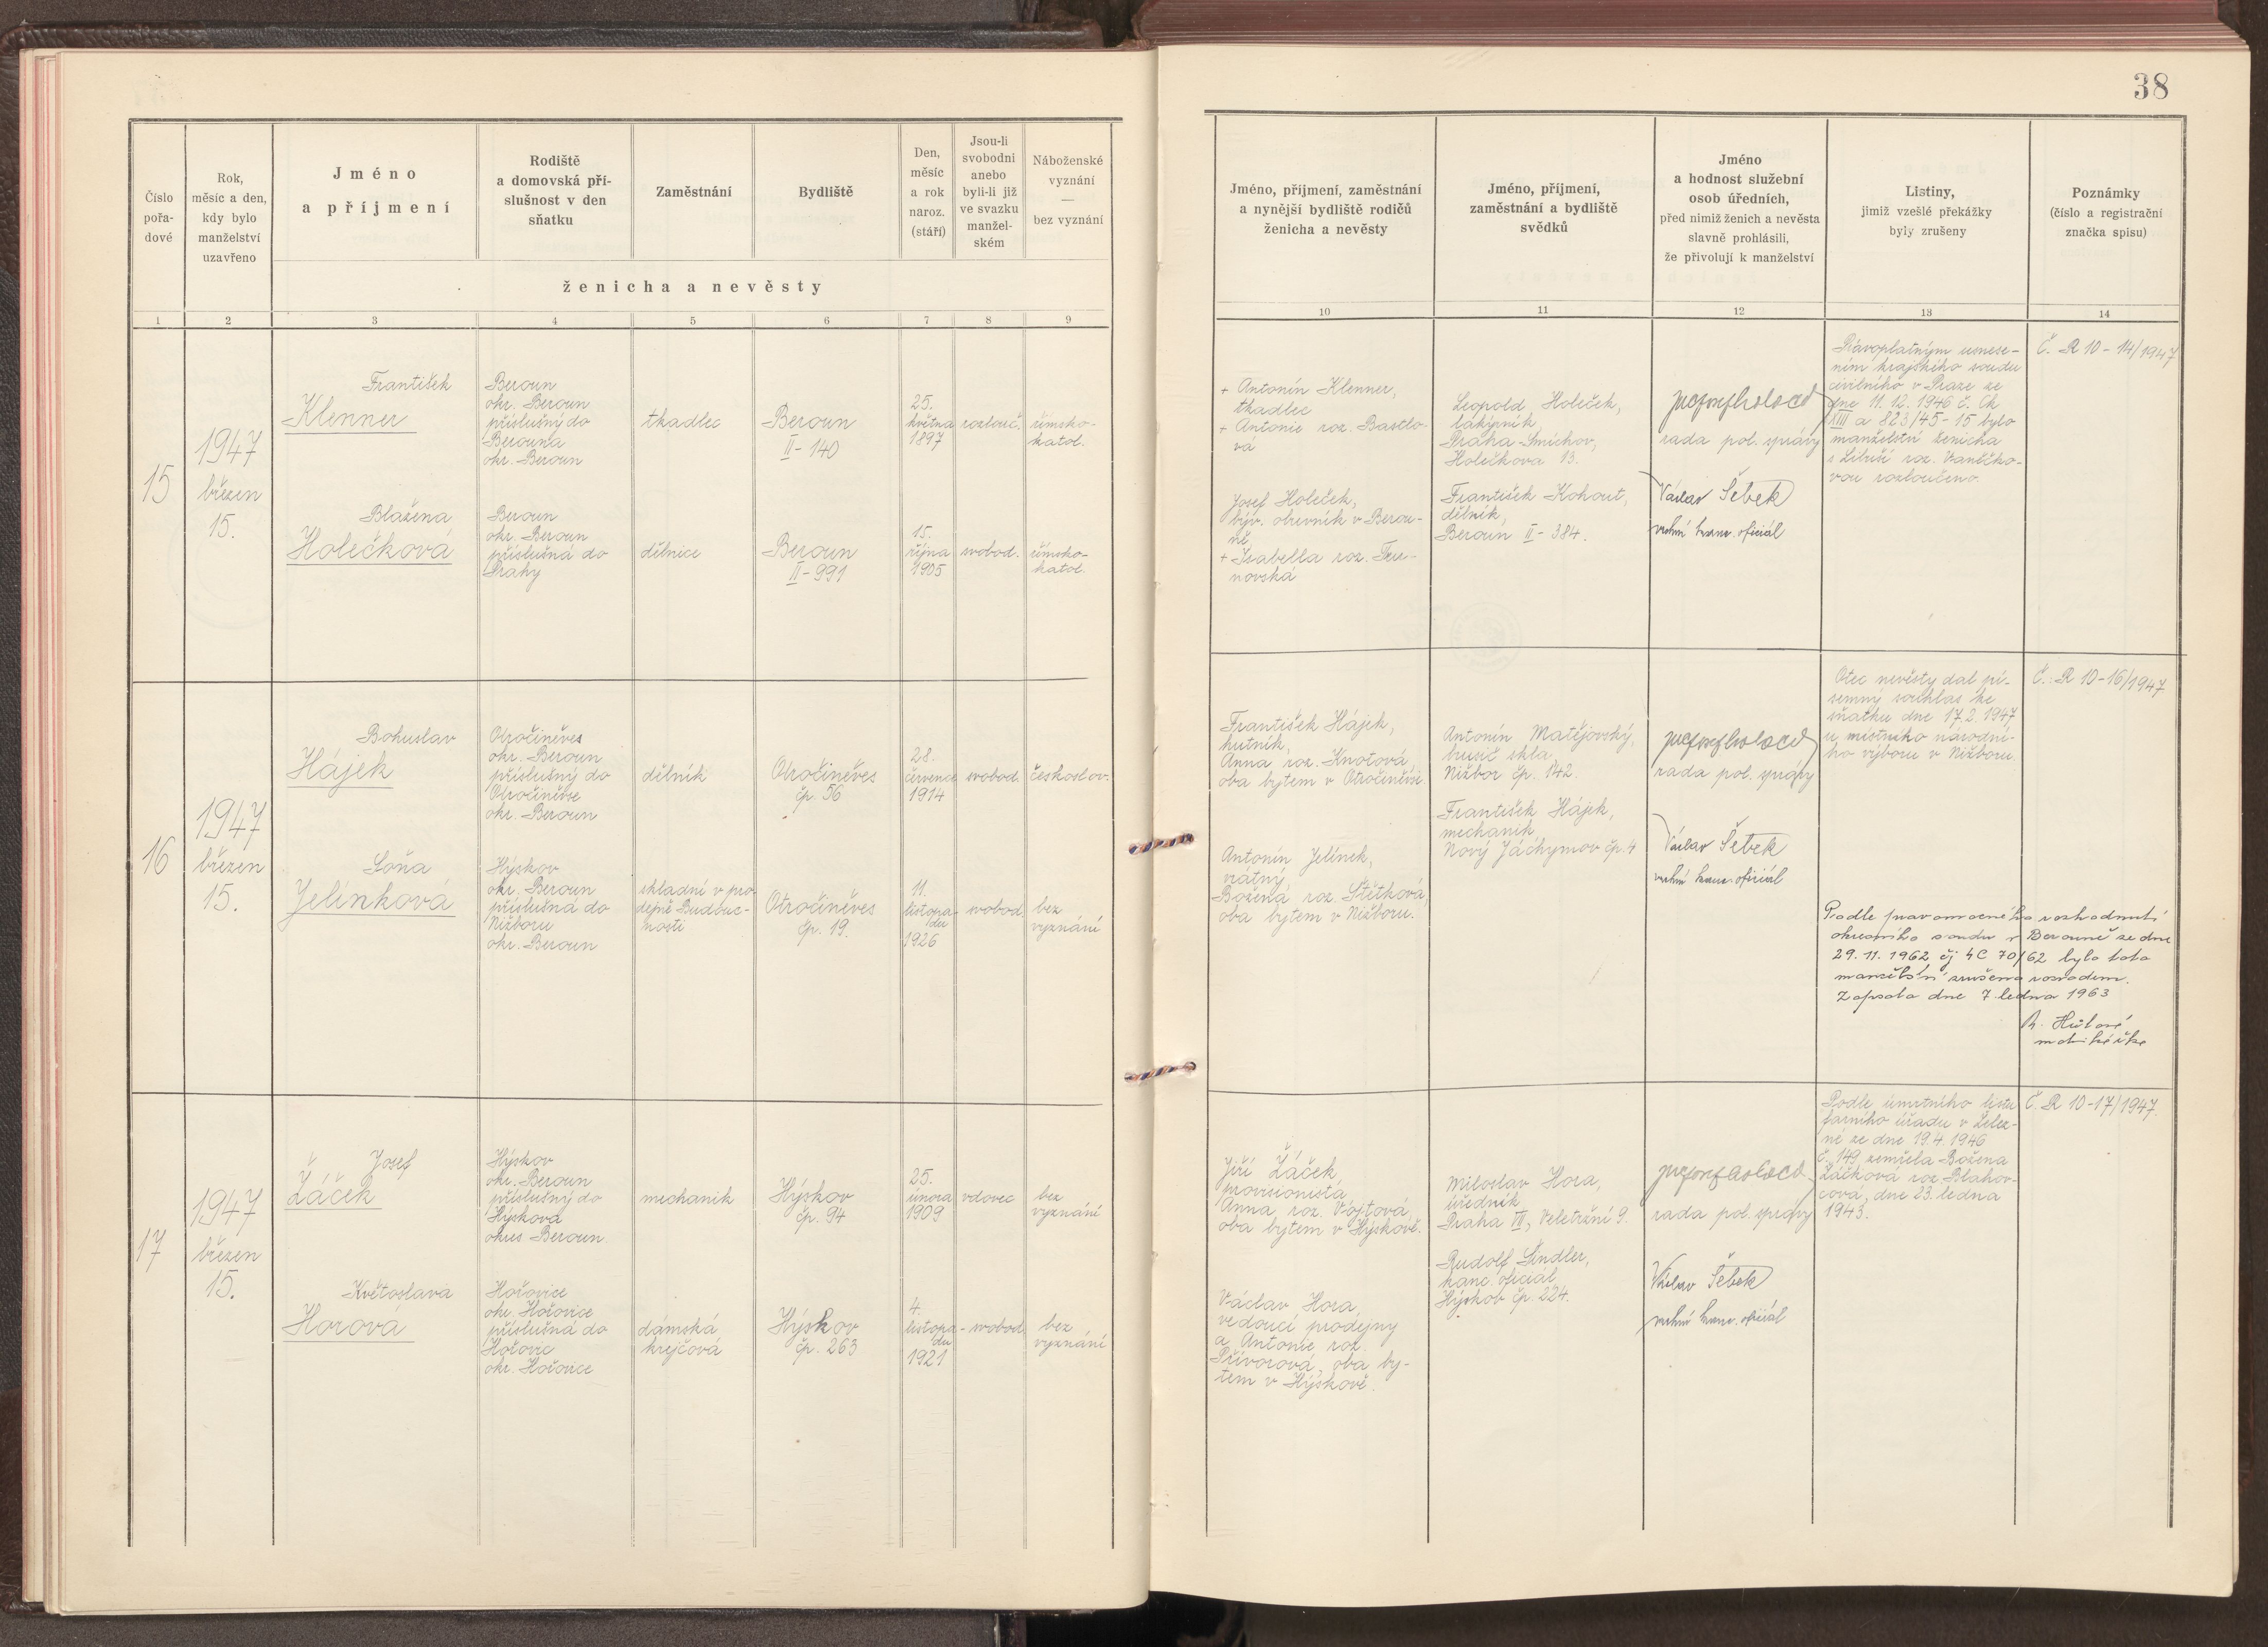 38
Číslo
pořa-
dové
Rok,
měsíc a den,
kdy bylo
manželství
uzavřeno
Jméno
a příjmení
Rodiště
a domovská pří-
slušnost v den
sňatku
Zaměstnání
Bydliště
Den,
měsíc
a rok
naroz.
(stáří)
Jsou-li
svobodni
anebo
byli-li již
ve svazku
manžel-
ském
Náboženské
vyznání
—
bez vyznání
ženicha a nevěsty
Jméno, příjmení, zaměstnání
a nynější bydliště rodičů
ženicha a nevěsty
Jméno, příjmení,
zaměstnání a bydliště
svědků
Jméno
a hodnost služební
osob úředních,
před nimiž ženich a nevěsta
slavně prohlásili,
že přivolují k manželství
Listiny,
jimiž vzešlé překážky
byly zrušeny
Poznámky
(číslo a registrační
značka spisu)
1 2 3 4 5 6 7 8 9 10 11 12 13 14
15
1947
březen
15.
František
Klenner
Beroun
okr. Beroun
příslušný do
Berouna
okr. Beroun
tkadlec
Beroun
II - 140
25.
května
1897
rozlouč.
římsko-
katol.
Blažena
Holečková
Beroun
okr. Beroun
příslušná do
Prahy
dělnice
Beroun
II - 991
15.
října
1905
svobod.
římsko-
katol.
+ Antonín Klenner,
tkadlec
+ Antonie roz. Bastlo-
vá
Josef Holeček,
býv. obuvník v Berou-
ně
+ Isabella roz. Tur-
novská
Leopold Holeček,
lakýrník,
Praha-Smíchov,
Holečkova 13.
František Kohout,
dělník,
Beroun II - 384.
rada pol. správy
Václav Šebek
vrchní kanc. oficiál
Právoplatným usnese-
ním krajského soudu
civilního v Praze ze
dne 11. 12. 1946 č. Ck
XIII a 823/45 - 15 bylo
manželství ženicha
s Libuší roz. Vaněčko-
vou rozloučeno.
Č. R 10 - 14/1947
16
1947
březen
15.
Bohuslav
Hájek
Otročiněves
okr. Beroun
příslušný do
Otročiněvse
okr. Beroun
dělník
Otročiněves
čp. 56
28.
července
1914
svobod.
českoslov.
Soňa
Jelínková
Hýskov
okr. Beroun
příslušná do
Nižboru
okr. Beroun
skladní v pro-
dejně Budouc-
nosti
Otročiněves
čp. 19.
11.
listopa-
du
1926
svobod.
bez
vyznání
František Hájek,
hutník,
Anna roz. Knotová
oba bytem v Otročiněvsi.
Antonín Jelínek,
vrátný
Božena roz. Štětková,
oba bytem v Nižboru.
Antonín Matějovský,
brusič skla
Nižbor čp. 142.
František Hájek,
mechanik
Nový Jáchymov čp. 4
rada pol. správy
Václav Šebek
vrchní kanc. oficiál
Otec nevěsty dal pí-
semný souhlas ke
sňatku dne 17. 2. 1947
u místního národní-
ho výboru v Nižboru.
Č.: R 10 - 16/1947
Podle pravomocného rozhodnutí
okresního soudu v Berouně ze dne
29. 11. 1962 čj 4C 70/62 bylo toto
manželství zrušeno rozvodem.
Zapsáno dne 7. ledna 1963
matrikářka
17
1947
březen
15.
Josef
Žáček
Hýskov
okr. Beroun
příslušný do
Hýskova
okres Beroun
mechanik
Hýskov
čp. 94
25.
února
1909
vdovec
bez
vyznání
Květoslava
Horová
Hořovice
okr. Hořovice
příslušná do
Hořovic
okr. Hořovice
dámská
krejčová
Hýskov
čp. 263
4.
listopa-
du
1921
svobod.
bez
vyznání
Jiří Žáček,
provisionista,
Anna roz. Vojtová,
oba bytem v Hýskově.
Václav Hora,
vedoucí prodejny
a Antonie roz.
Přívorová, oba by-
tem v Hýskově.
Miloslav Hora,
úředník
Praha VII, Veletržní 9.
Rudolf Šindler,
kanc. oficiál
Hýskov čp. 224.
rada pol. správy
Václav Šebek
vrchní kanc. oficiál
Podle úmrtního listu
farního úřadu v Želez-
né ze dne 19. 4. 1946
č. 149 zemřela Božena
Žáčková roz. Blahov-
cová, dne 23. ledna
1943.
Č. R 10 - 17/1947.